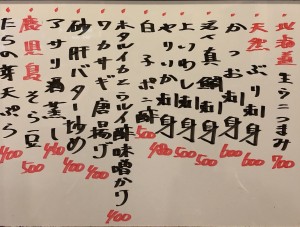 北海道 生うにつまみ 700
天然 ぶり刺身 600
かつお刺身 600
真鯛刺身 500
上いわし刺身 500
やりいか刺身 480
白子ポン酢 500
ホタルイカとウルイ酢味噌かけ 400
ワカサギ唐揚げ 400
砂肝バター炒め 400
アサリ酒蒸し 490
鹿児島 そら豆 500
たらの芽天ぷら 400